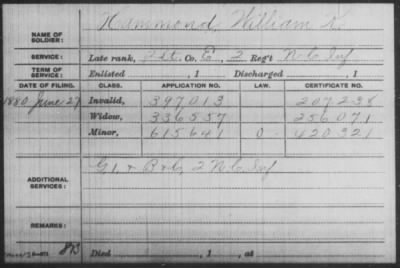 NAME OF SOLDIER: Hammond, William
SERVICE: Late rank, Pvt. Co. E, 2 Reg't N.C. Inf
TERM OF SERVICE: Enlisted , 1 Discharged , 1
DATE OF FILING. CLASS. APPLICATION NO. LAW. CERTIFICATE NO.
1880 June 29 Invalid, 397013 207238
Widow, 336557 256071
Minor, 615641 0 420321
ADDITIONAL SERVICES: G 1, & B & G 2 N.C. Inf
REMARKS:
873 Died , 1 , at